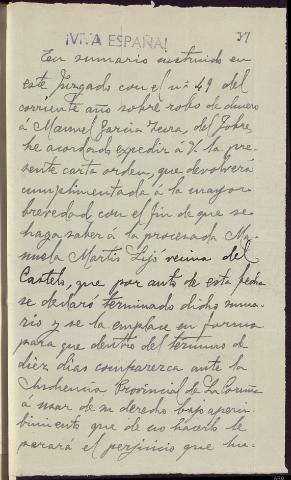 ¡VIVA ESPAÑA! 37
En sumario instruido en
este Juzgado con el nº 49 del
corriente año sobre robo de dinero
á Manuel Garcia, del Pobre,
he acordado expedir á V. la pre-
sente carta orden, que devolverá
cumplimentada á la mayor
brevedad, con el fin de que se
haga saber á la procesada Ma-
nuela Martis Lijó vecina del
Castelo, que por auto de esta fecha
se declaró terminado dicho suma-
rio y se la emplace en forma
para que dentro del termino de
diez dias comparezca ante la
Audiencia Provincial de La Coruña
á usar de su derecho bajo aperci-
bimiento que de no hacerlo le
parará el perjuicio que hu-